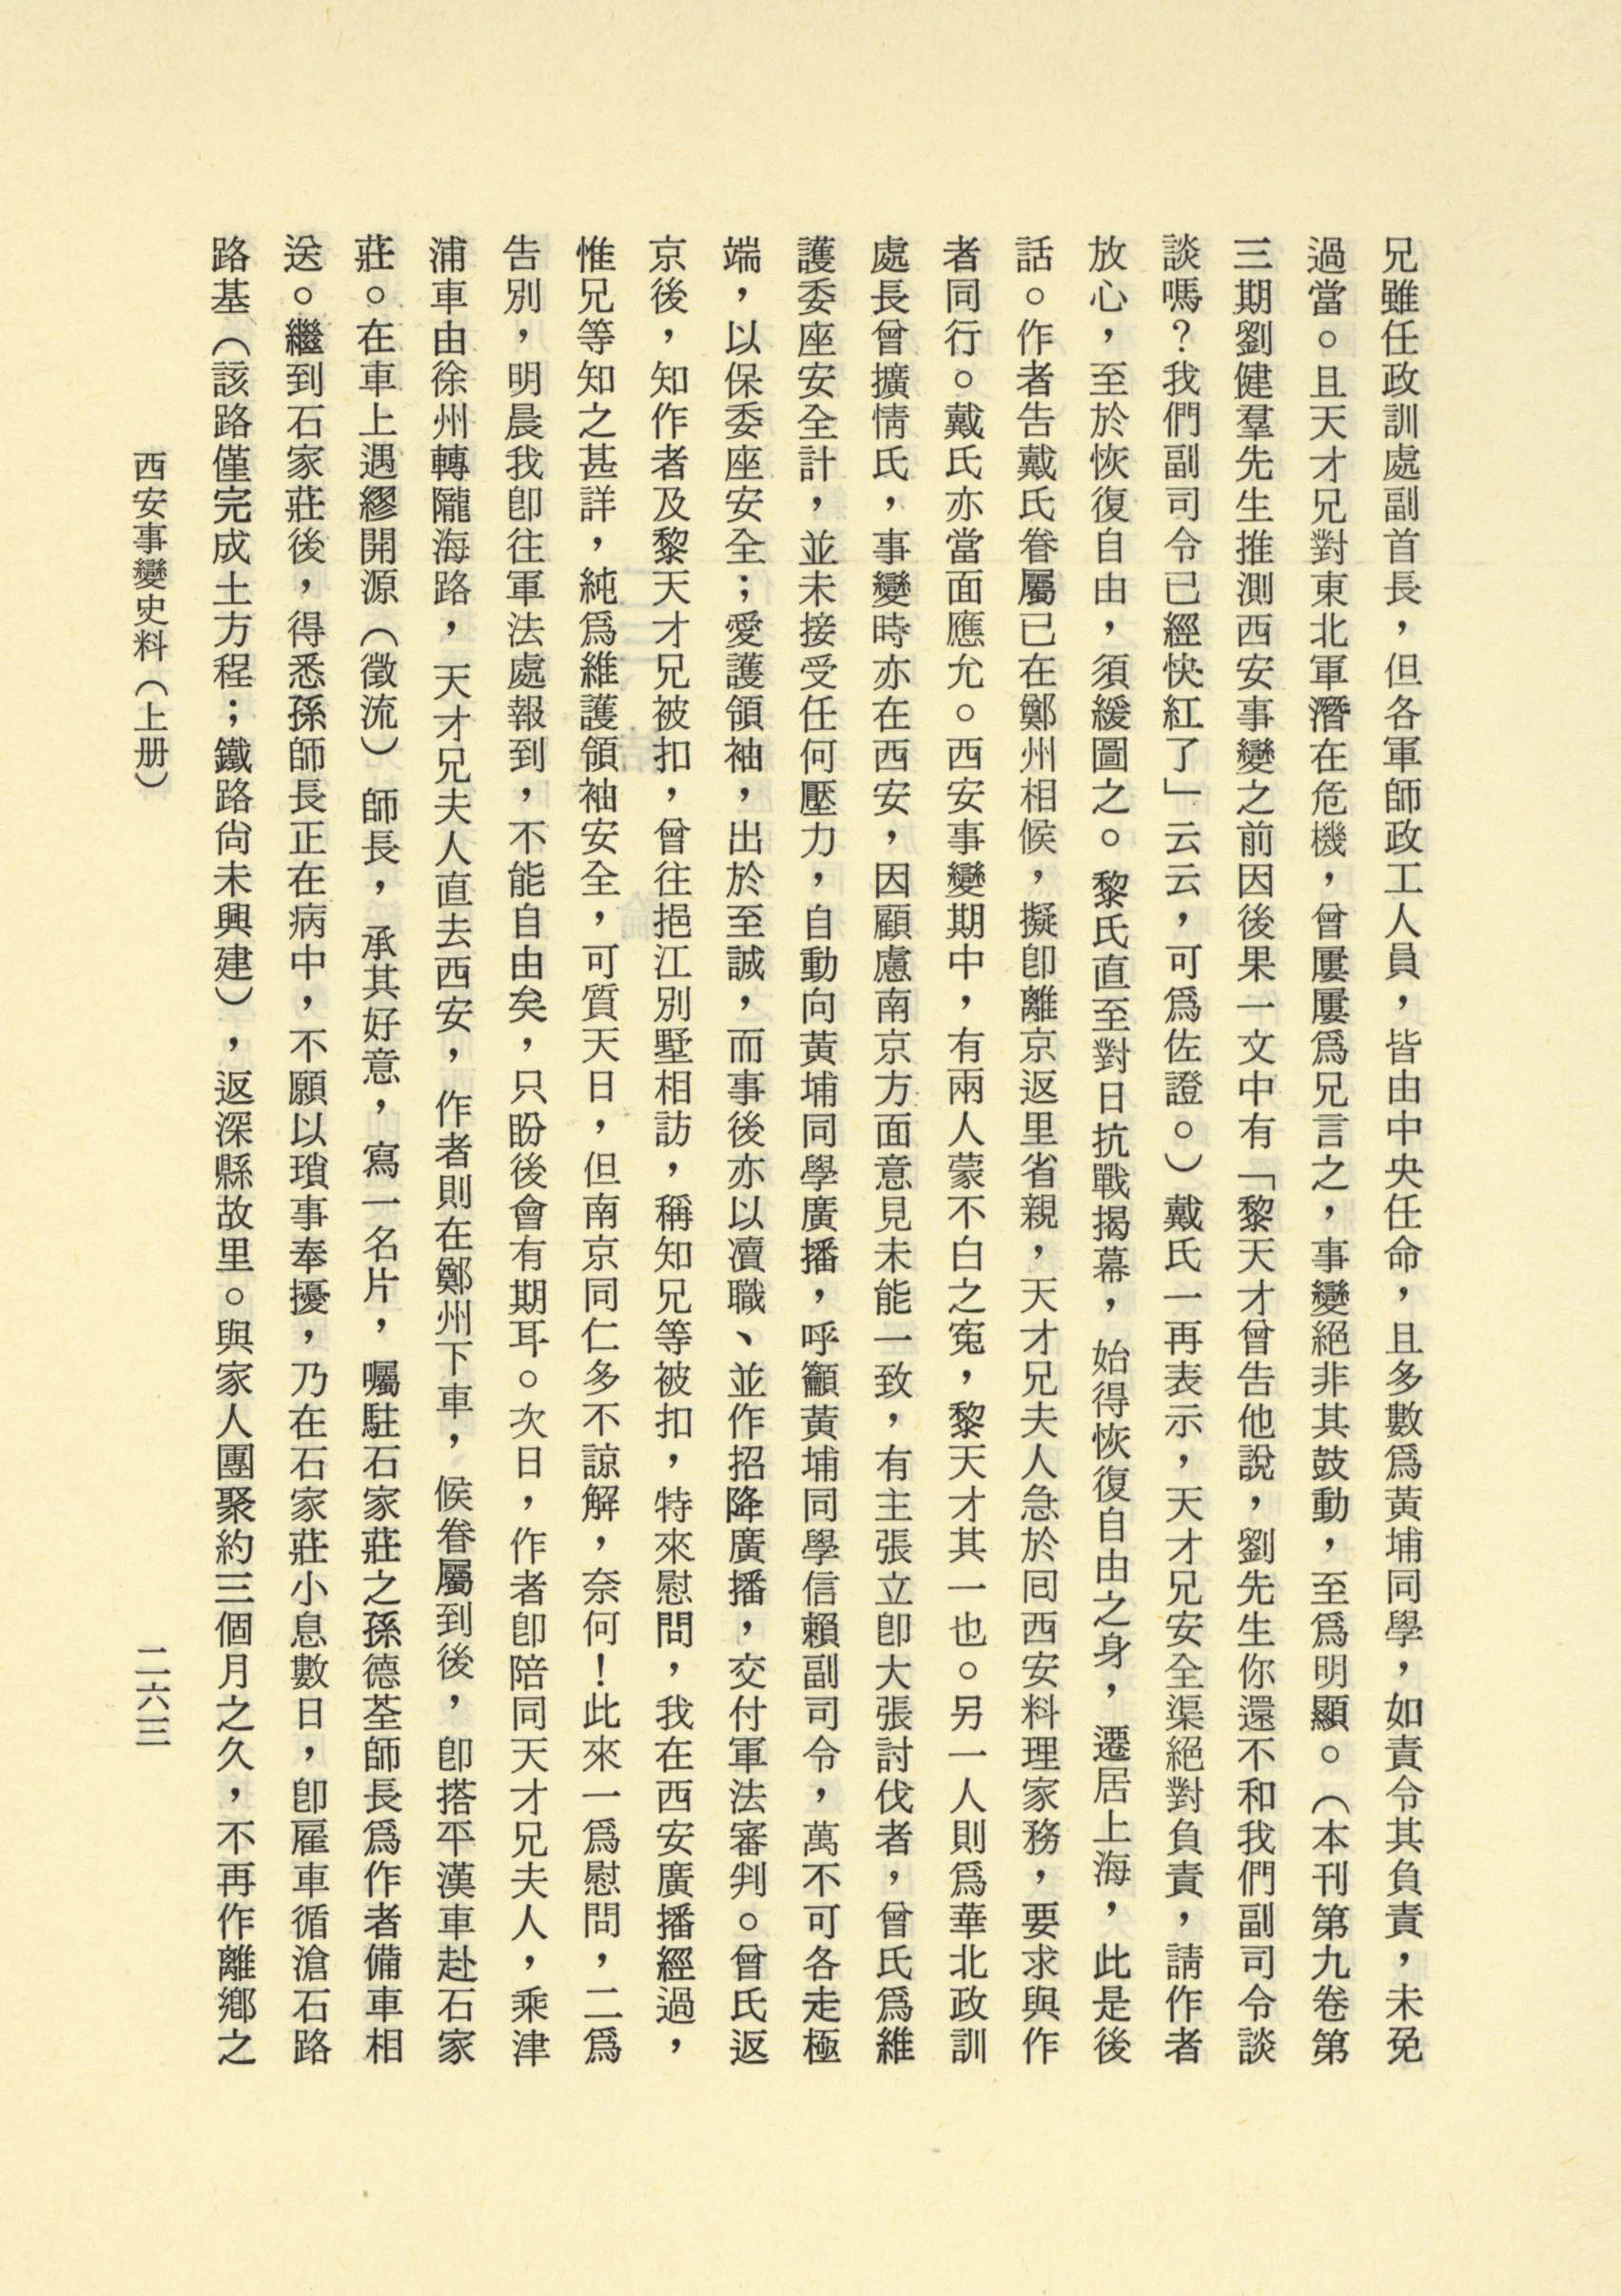 兄雖任政訓處副首長，但各軍師政工人員，皆由中央任命，且多數爲黃埔同學，如責令其負責，未免
過當。且天才兄對東北軍潛在危機，曾屢屢爲兄言之，事變絕非其鼓動，至爲明顯。（本刊第九卷第
三期劉健羣先生推測西安事變之前因後果一文中有「黎天才曾告他說，劉先生你還不和我們副司令談
談嗎？我們副司令已經快紅了」云云，可爲佐證。）戴氏一再表示，天才兄安全渠絕對負責，請作者
放心，至於恢復自由，須緩圖之。黎氏直至對日抗戰揭幕，始得恢復自由之身，遷居上海，此是後
話。作者告戴氏眷屬已在鄭州相候，擬卽離京返里省親，天才兄夫人急於囘西安料理家務，要求與作
者同行。戴氏亦當面應允。西安事變期中，有兩人蒙不白之寃，黎天才其一也。另一人則爲華北政訓
處長曾擴情氏，事變時亦在西安，因顧慮南京方面意見未能一致，有主張立卽大張討伐者，曾氏爲維
護委座安全計，並未接受任何壓力，自動向黃埔同學廣播，呼籲黃埔同學信賴副司令，萬不可各走極
端，以保委座安全；愛護領袖，出於至誠，而事後亦以凟職、並作招降廣播，交付軍法審判。曾氏返
京後，知作者及黎天才兄被扣，曾往挹江別墅相訪，稱知兄等被扣，特來慰問，我在西安廣播經過，
惟兄等知之甚詳，純爲維護領袖安全，可質天日，但南京同仁多不諒解，奈何！此來一爲慰問，二爲
告別，明晨我卽往軍法處報到，不能自由矣，只盼後會有期耳。次日，作者卽陪同天才兄夫人，乘津
浦車由徐州轉隴海路，天才兄夫人直去西安，作者則在鄭州下車，候眷屬到後，卽搭平漢車赴石家
莊。在車上遇繆開源（徵流）師長，承其好意，寫一名片，囑駐石家莊之孫德荃師長爲作者備車相
送。繼到石家莊後，得悉孫師長正在病中，不願以瑣事奉擾，乃在石家莊小息數日，卽雇車循滄石路
路基（該路僅完成土方程；鐵路尙未興建），返深縣故里。與家人團聚約三個月之久，不再作離鄉之
西安事變史料（上册）
二六三